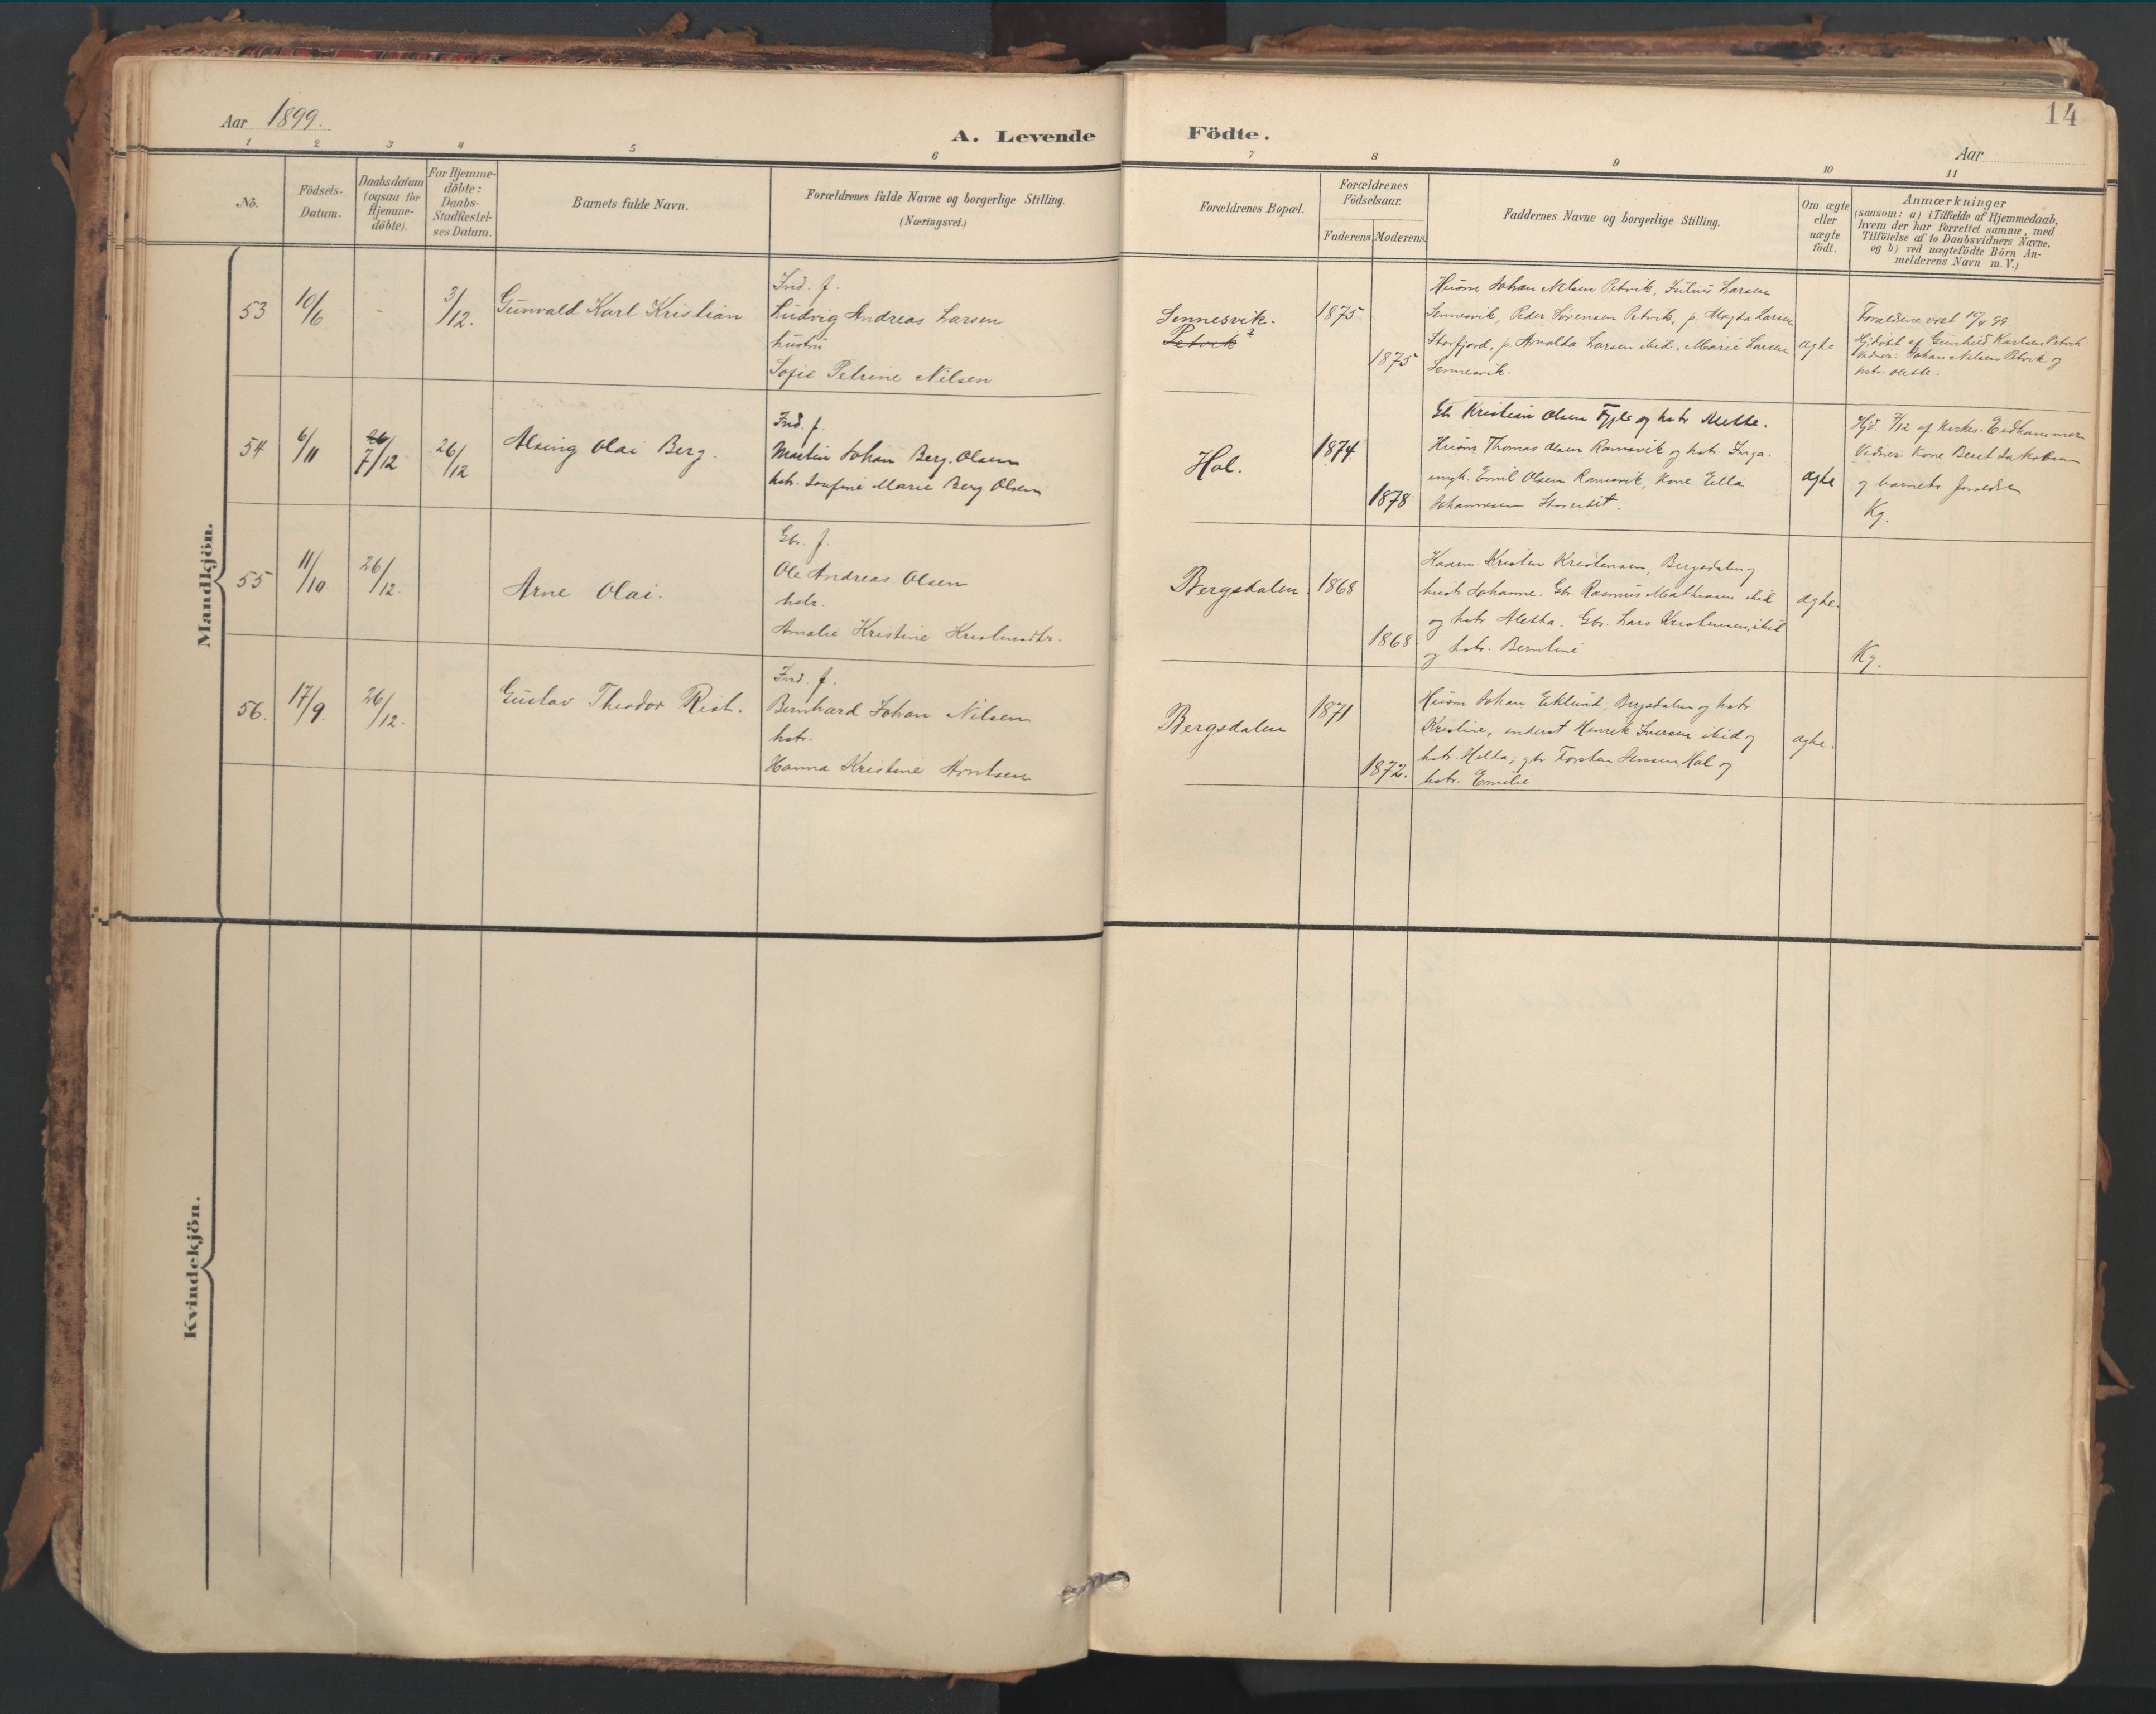 14
Aar 1899.
A. Levende Födte.
Aar
1 2 3 4 5 6 7 8 9 10 11
No.
Födsels-
Datum.
Daabsdatum
(ogsaa for
Hjemme-
döbte).
For Hjemme-
döbte:
Daabs-
Stadfæstel-
ses Datum.
Barnets fulde Navn.
Forældrenes fulde Navne og borgerlige Stilling.
(Næringsvei.)
Forældrenes Bopæl.
Forældrenes
Födselsaar.
Faderens Moderens
Faddernes Navne og borgerlige Stilling.
Om ægte
eller
uægte
födt.
Anmærkninger
(saasom: a) i Tilfælde af Hjemmedaab,
hvem der har forrettet samme, med
Tilföielse af to Daabsvidners Navne,
og b) ved uægtefödte Börn An-
melderens Navn m. V.)
Mandkjön.
53
10/6
-
3/12.
Gunvald Karl Kristian
Ind. f.
Ludvig Andreas Larsen
hustru
Sofie Petrine Nilsen
Sennesvik.
Petvik
1875
1875
Husm Johan Nilsen Petvik, Julius Larsen
Sennesvik, Peder Sörensen Petvik, p. Magda Larsen
Storfjord, p. Arnalda Larsen ibid. Marie Larsen
Sennesvik.
ægte
Forældrene viet 10/4 99
Hjdöbt af Gunhild Karlsen Petvik
Vidner: Johan Nilsen Petvik og
hstr.
54
6/11
26
7/12
26/12
Alsing Olai Berg.
Ind. f.
Martin Johan Berg. Olsen
hstr. Josefine Marie Berg Olsen
Hol.
1874
1878
Gbr Kristian Olsen Fygle og hstr Mette.
Husm Thomas Olsen Ramsvik og hstr. Inga.
ungk. Emil Olsen Ramsvik, kone Ella
Johannesen
ægte
Hjd. 7/12 af Kirkes. Eidhammer
Vidner: Kone Beret Jakobsen
og barnets forældre
Kg.
55
11/10.
26/12.
Arne Olai.
Gbr. f.
Ole Andreas Olsen
hstr.
Amalie Kristine
Bergsdalen.
1868
1868
Kristen Kristensen, Bergsdalen og
hustr Johanne. Gbr. Rasmus Mathiasen ibid
og hstr Aletha. Gbr. Lars Kristensen, ibid
og hstr. Berntine
ægte.
Kg.
56.
17/9.
26/12.
Gustav Theodor Rist.
Ind. f.
Bernhard Johan Nilsen
hstr.
Hanna Kristine Arntsen
Bergsdalen
1871
1872.
Husm Johan Eklund, Bergsdalen og hstr
Kristine, Henrik Iversen ibid og
hstr. Hilda, gbr Torsten Jensen, Hol og
hstr. Emilie
ægte.
Kvindekjön.